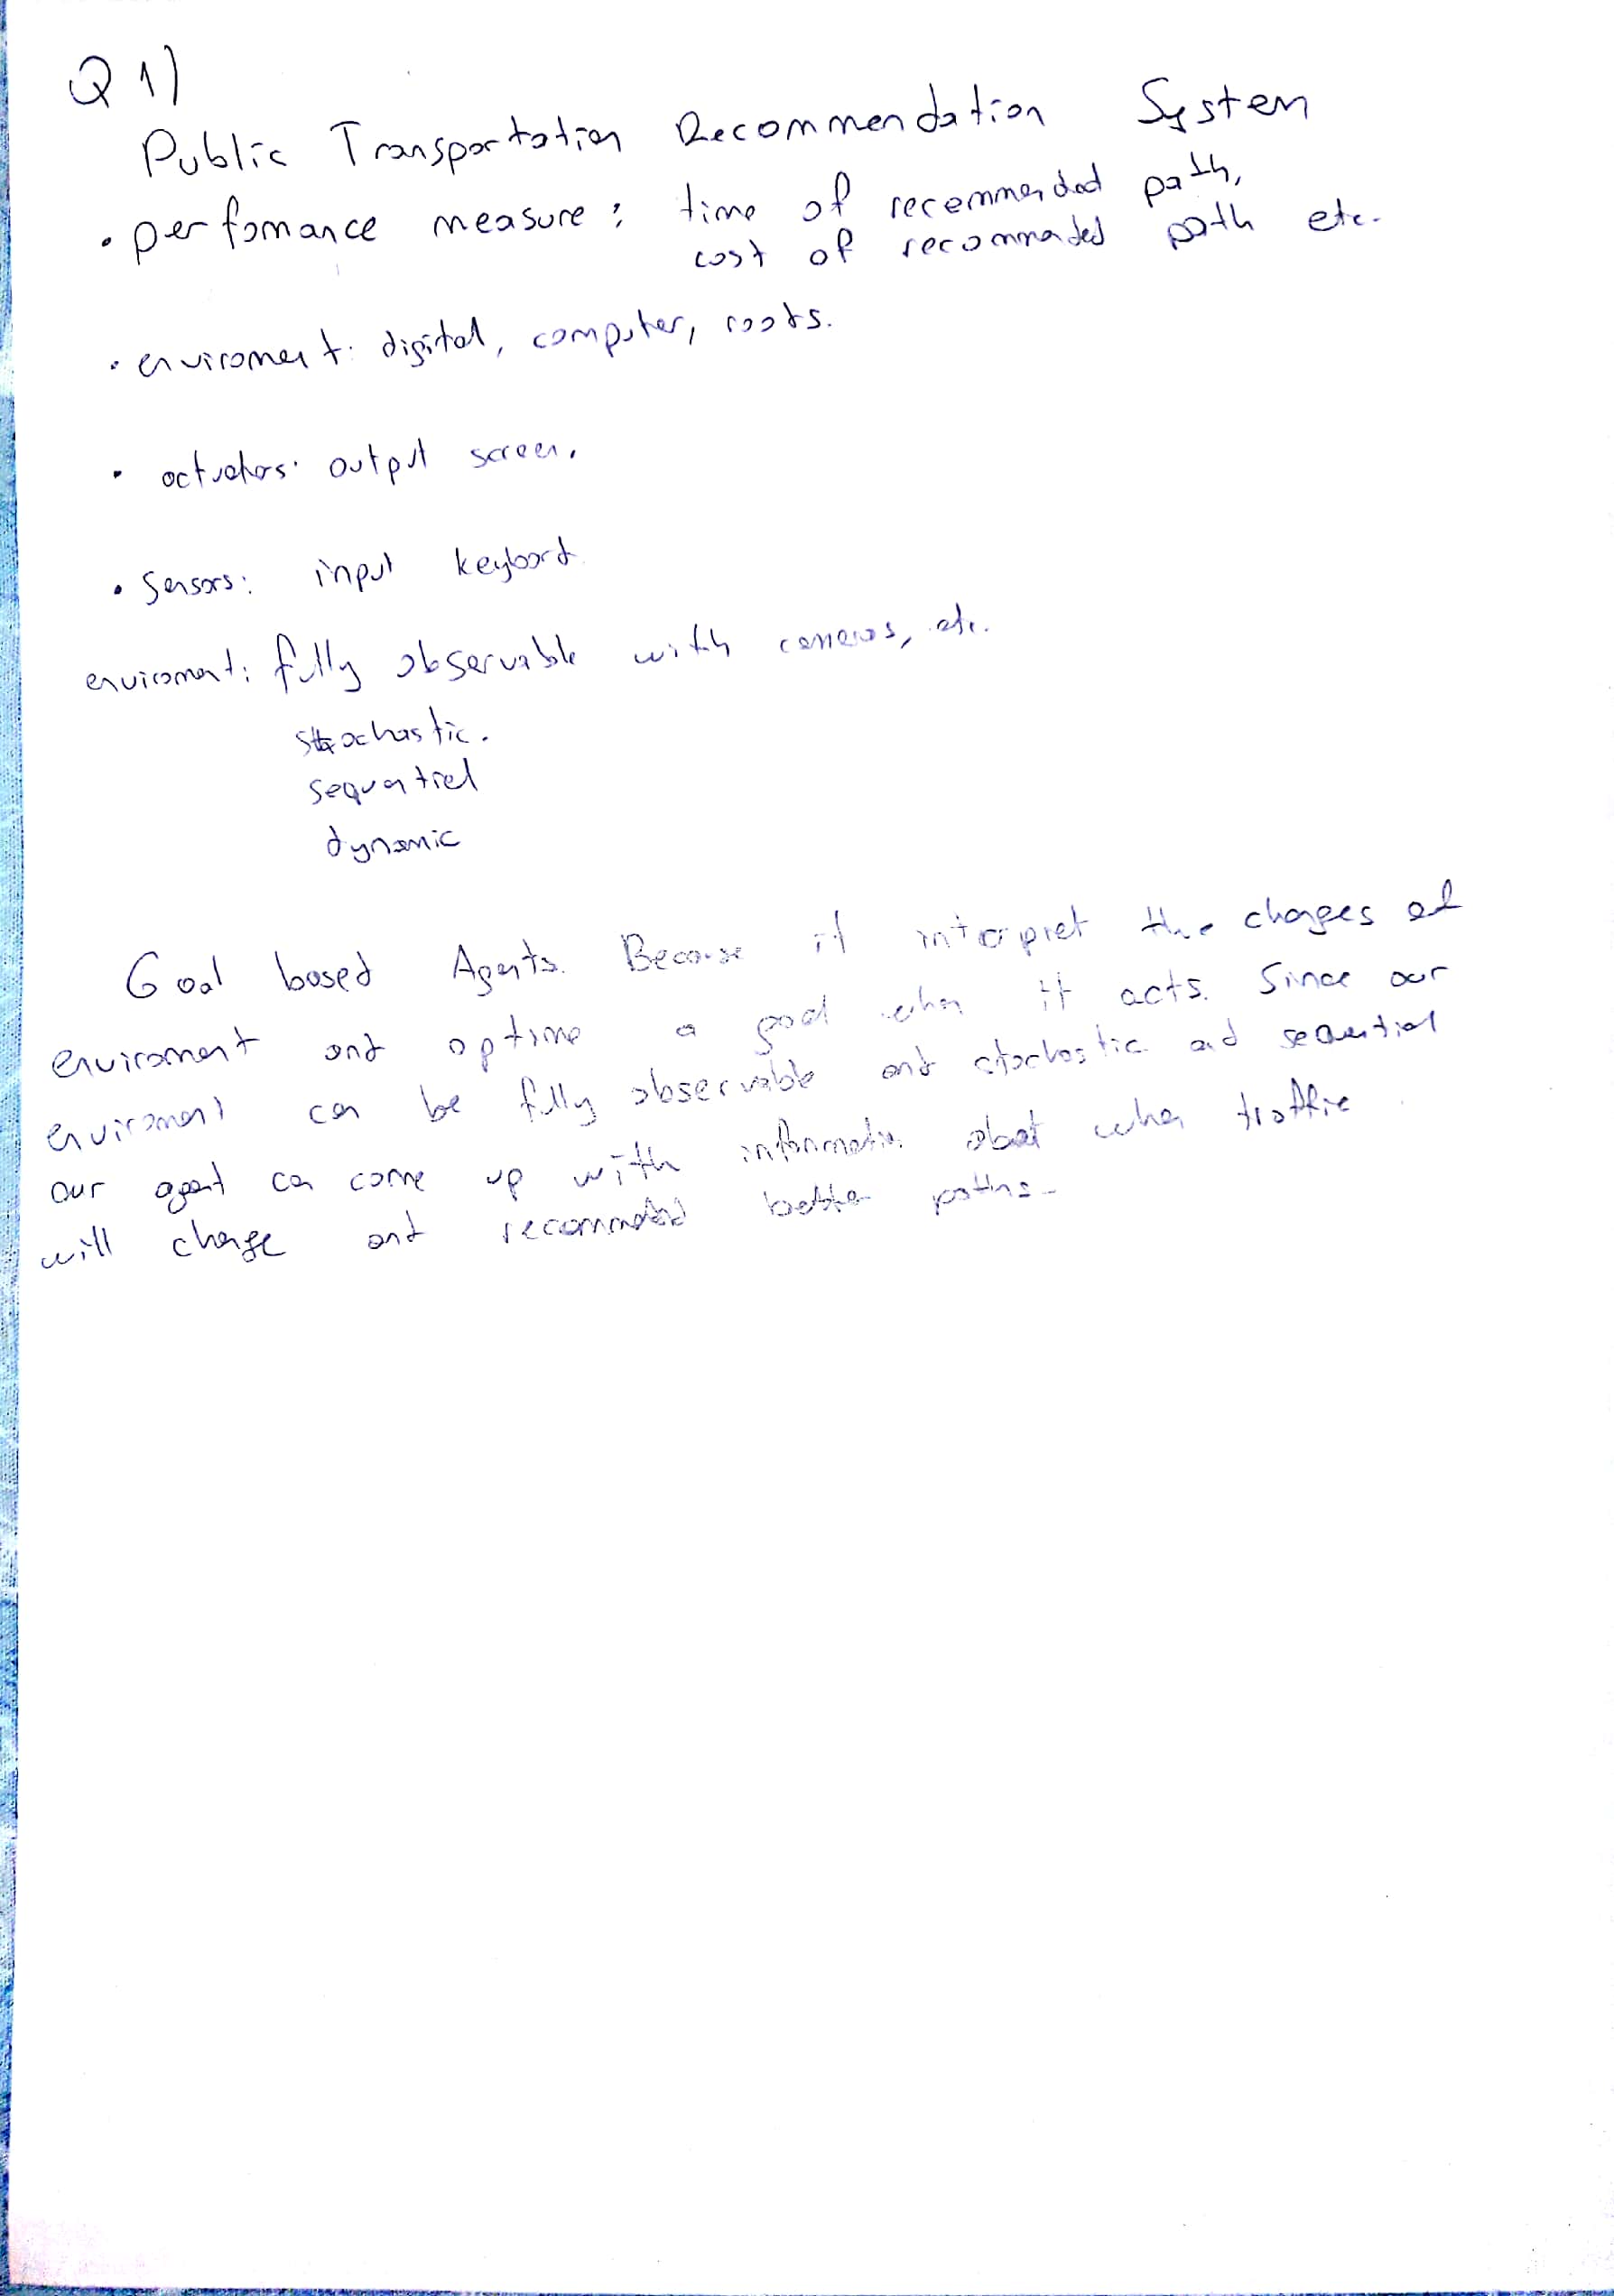 Q 1)
Public Transportation Recommendation System
• perfomance measure : time of recommended path,
cost of recommended path etc.
• enviroment: digital, computer, roots.
• actuators: output screen.
• Sensors: input keybord
enviroment: fully observable with cameras, etc.
stochastic.
sequential
dynamic
Goal based Agents. Because it interpret the changes of
enviroment and optime a goal when it acts. Since our
enviroment can be fully observable and stochastic and sequential
our agent can come up with information about when traffic
will change and recommended better paths.